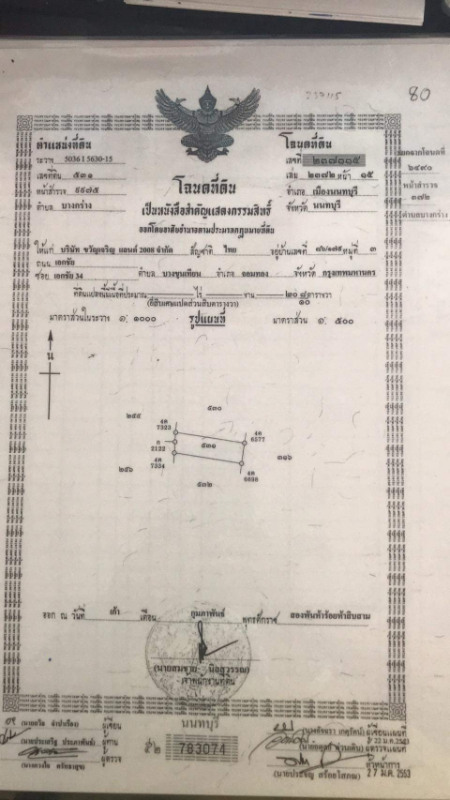 80
ตำแหน่งที่ดิน
ระวาง 5036 I 5630-15
เลขที่ดิน ๕๓๑
หน้าสำรวจ ๙๙๗๕
ตำบล บางกร่าง
โฉนดที่ดิน
เลขที่ ๒๓๗๑๑๕
เล่ม ๒๓๗๒ หน้า ๑๕
อำเภอ เมืองนนทบุรี
จังหวัด นนทบุรี
ออกจากโฉนดที่
๖๔๙๐
หน้าสำรวจ
๓๗๒
ตำบลบางกร่าง
โฉนดที่ดิน
เป็นหนังสือสำคัญแสดงกรรมสิทธิ์
ออกโดยอาศัยอำนาจตามประมวลกฎหมายที่ดิน
ให้แก่ บริษัท ขวัญเจริญ แลนด์ 2008 จำกัด สัญชาติ ไทย อยู่บ้านเลขที่ หมู่ที่ ๓
ถนน เอกชัย
ซอย เอกชัย 34 ตำบล บางขุนเทียน อำเภอ จอมทอง จังหวัด กรุงเทพมหานคร
ที่ดินแปลงนี้มีเนื้อที่ประมาณ ไร่ งาน ๒๐ ๗/๑๐ ตารางวา
(ยี่สิบเศษเจ็ดส่วนสิบตารางวา)
มาตราส่วนในระวาง ๑:๑๐๐๐ รูปแผนที่ มาตราส่วน ๑:๕๐๐
น
๒๕๕ ๕๓๐
๕๓๑
2122
7334
6577
๓๑๖
๒๕๖ ๕๓๒
ออก ณ วันที่ เก้า เดือน กุมภาพันธ์ พุทธศักราช สองพันห้าร้อยห้าสิบสาม
เจ้าพนักงานที่ดิน
นนทบุรี
783074
ผู้เขียน
ผู้ตรวจแผนที่
27 ม.ค. 2553